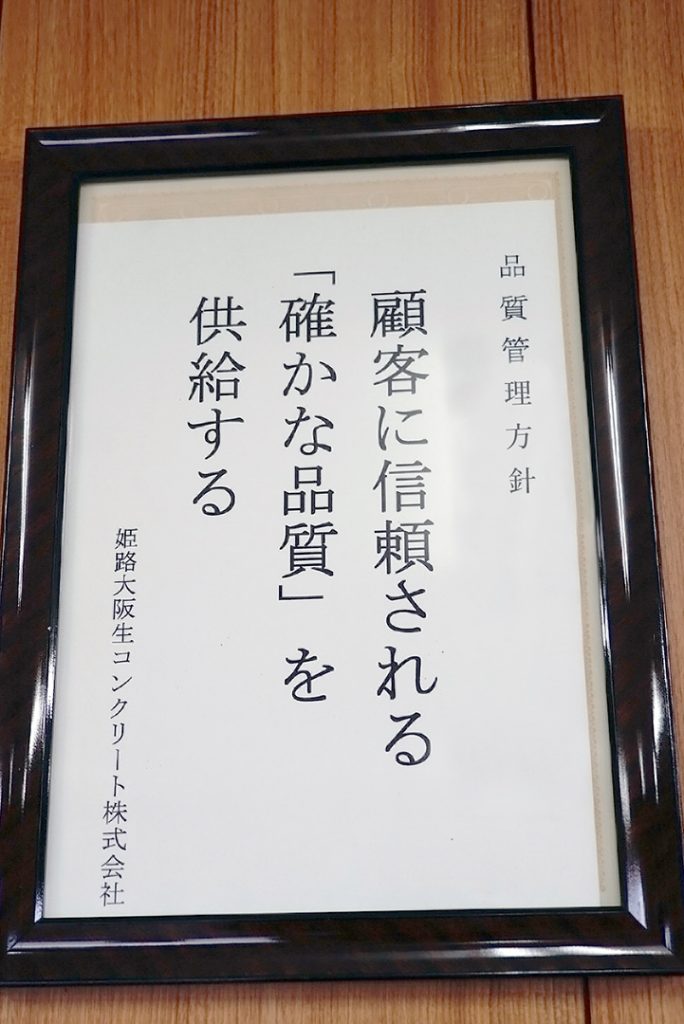 品質管理方針
顧客に信頼される
「確かな品質」を
供給する
姫路大阪生コンクリート株式会社